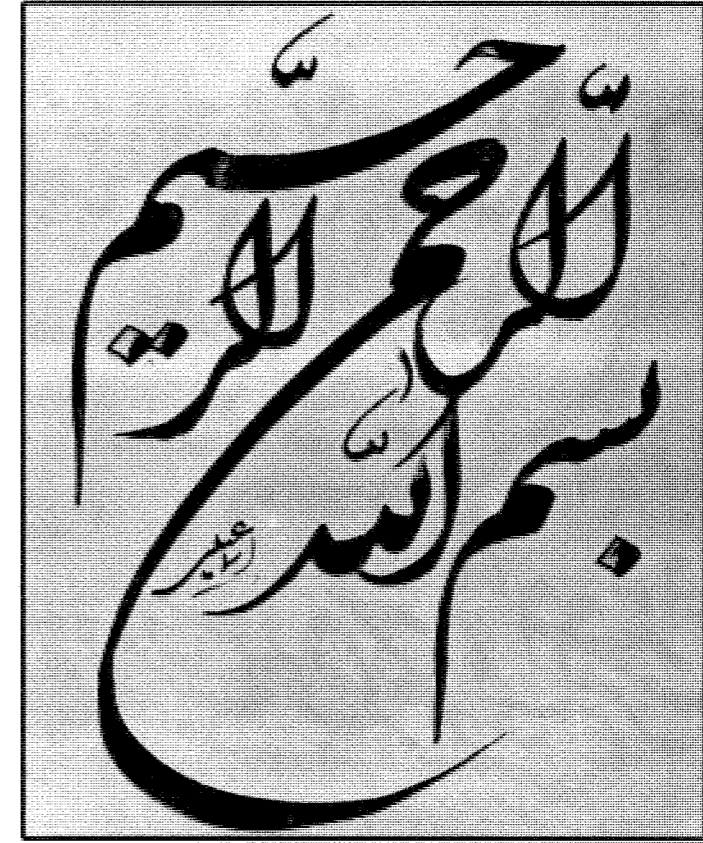 بسم الله
الرحمن
الرحيم